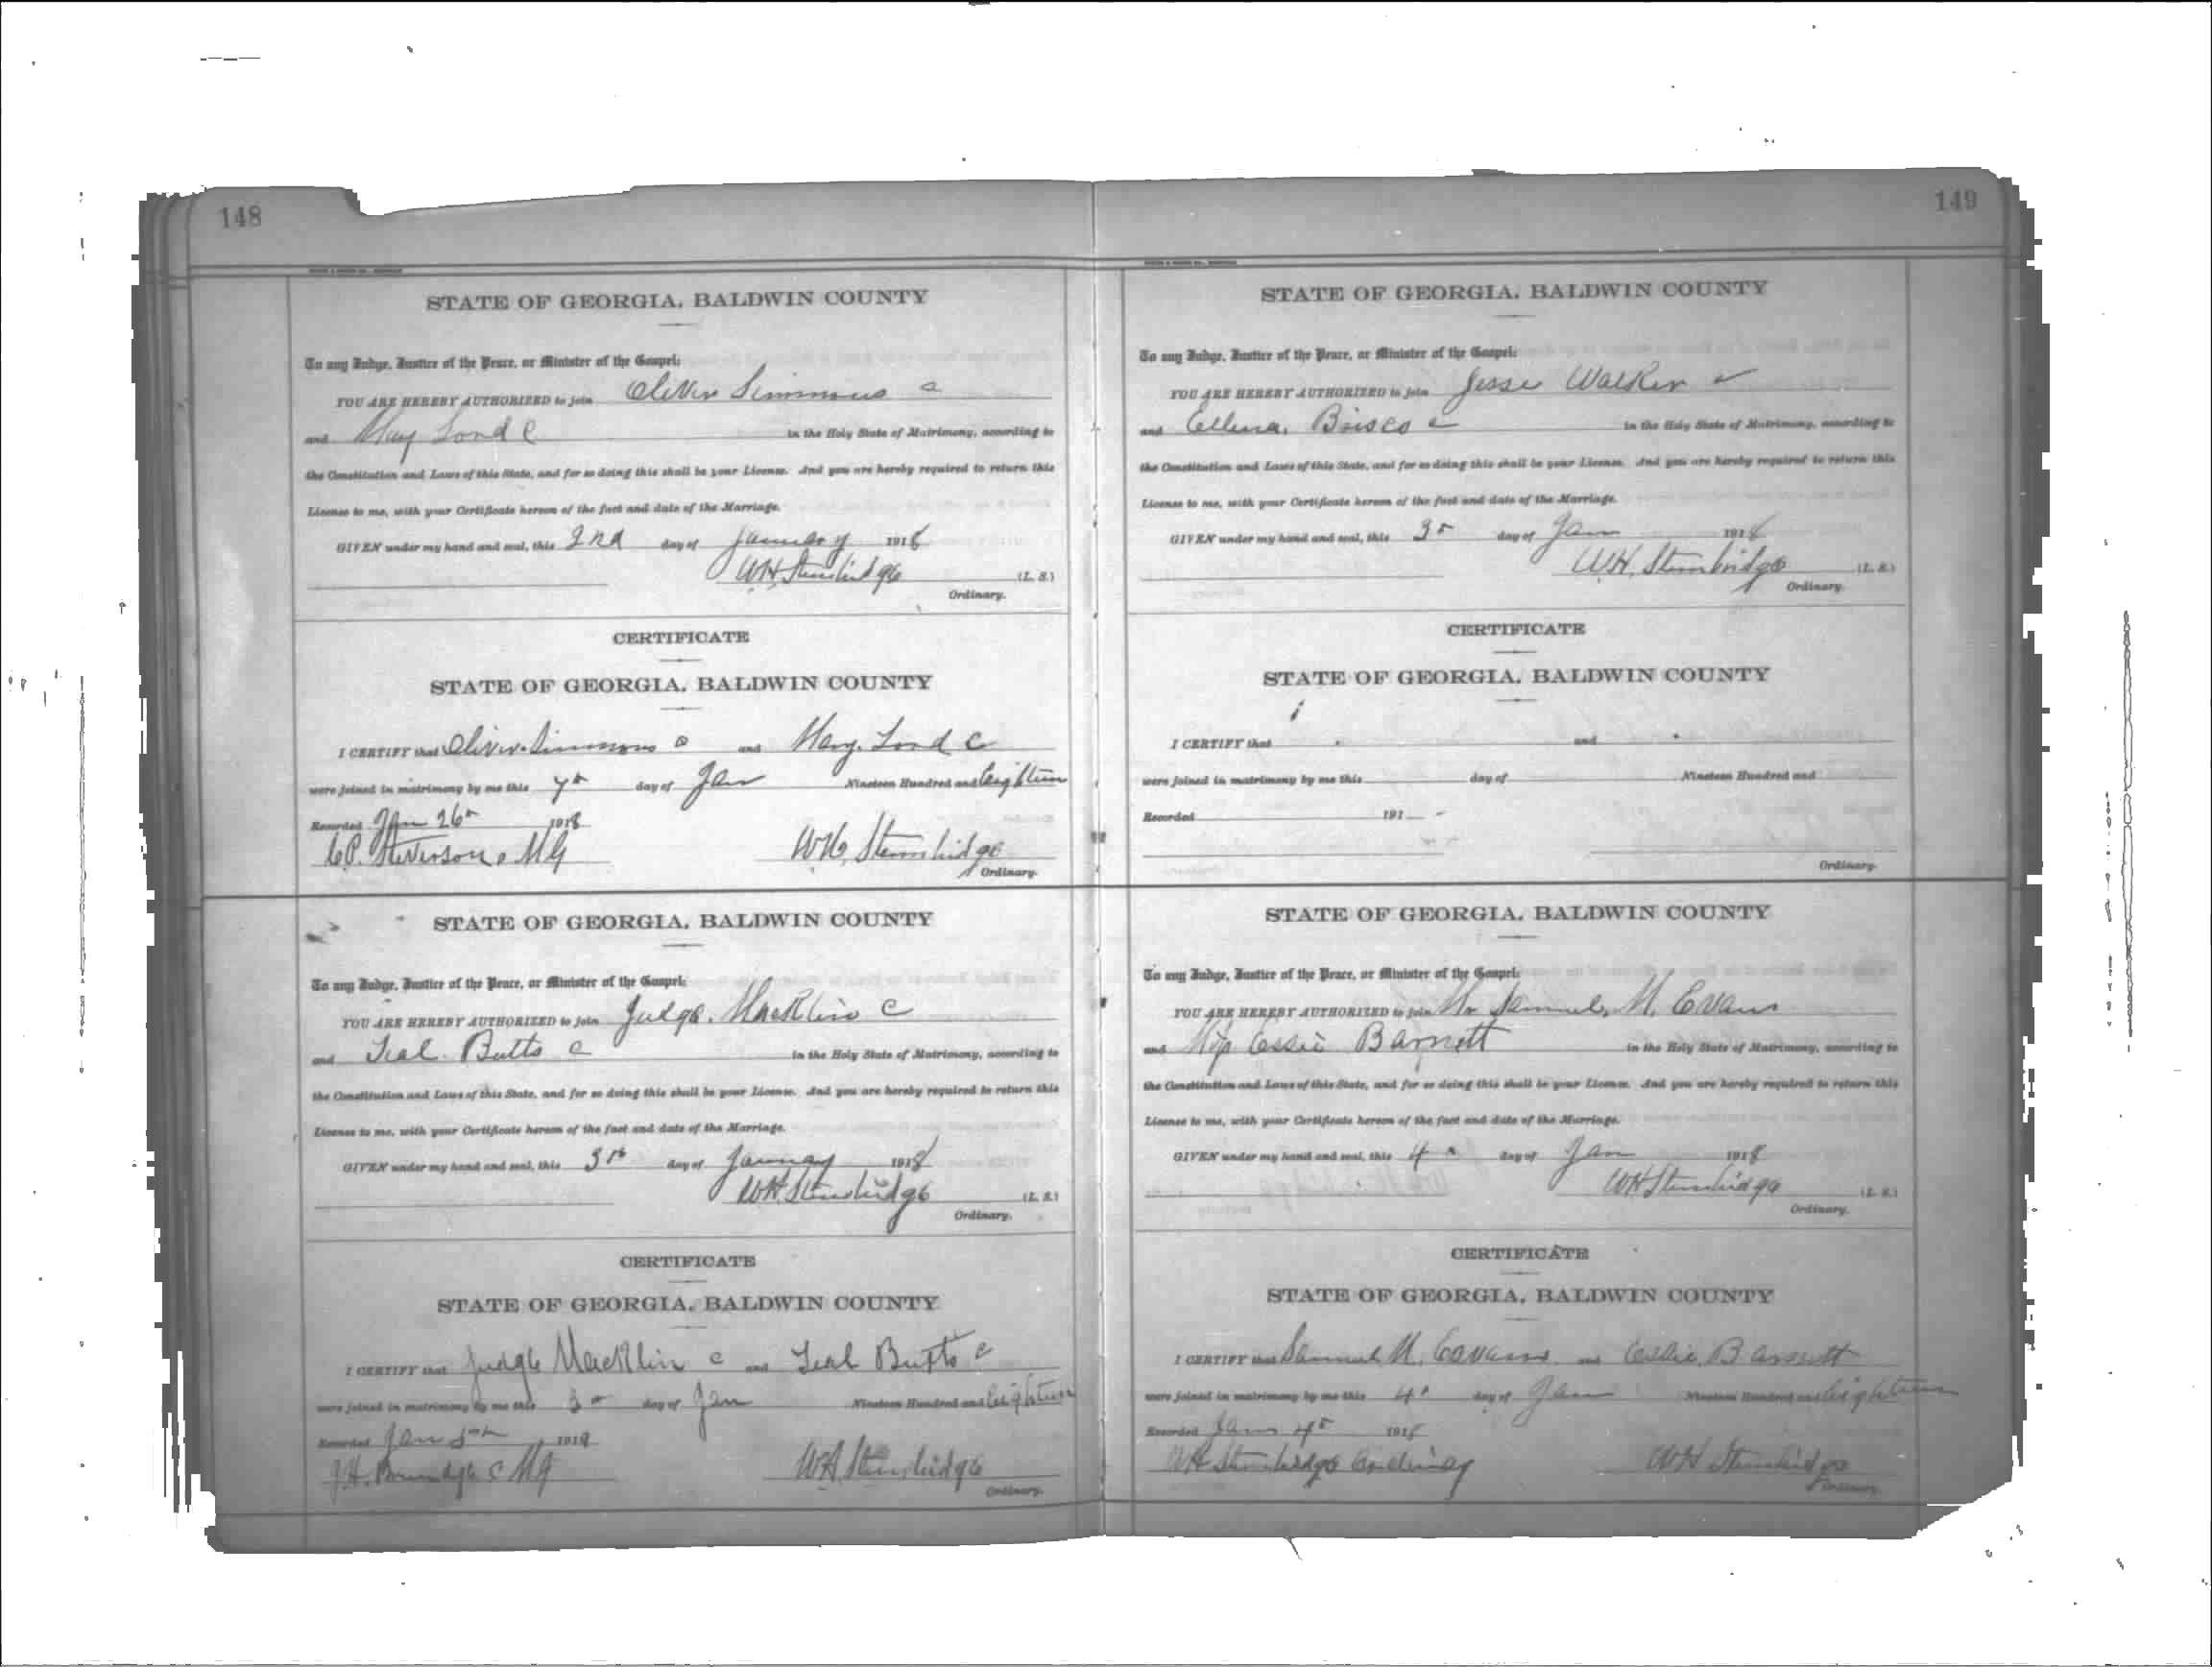 148
STATE OF GEORGIA, BALDWIN COUNTY
To any Judge, Justice of the Peace, or Minister of the Gospel:
YOU ARE HEREBY AUTHORIZED to join Oliver Simmons c
and May Lond C in the Holy State of Matrimony, according to
the Constitution and Laws of this State, and for so doing this shall be your License. And you are hereby required to return this
License to me, with your Certificate hereon of the fact and date of the Marriage.
GIVEN under my hand and seal, this 2nd day of January 1918
WH Stembridge (L. S.)
Ordinary.
CERTIFICATE
STATE OF GEORGIA, BALDWIN COUNTY
I CERTIFY that Oliver Simmons c and May Lond C
were joined in matrimony by me this 7th day of Jan Nineteen Hundred and Eighteen
Recorded Jan 26th 1918
C.P. Steverson c MG WH Stembridge
Ordinary.
STATE OF GEORGIA, BALDWIN COUNTY
To any Judge, Justice of the Peace, or Minister of the Gospel:
YOU ARE HEREBY AUTHORIZED to join Judge Macklin C
and Teal Butts c in the Holy State of Matrimony, according to
the Constitution and Laws of this State, and for so doing this shall be your License. And you are hereby required to return this
License to me, with your Certificate hereon of the fact and date of the Marriage.
GIVEN under my hand and seal, this 3th day of January 1918
WH Stembridge (L. S.)
Ordinary.
CERTIFICATE
STATE OF GEORGIA, BALDWIN COUNTY
I CERTIFY that Judge Macklin c and Teal Butts c
were joined in matrimony by me this 3 day of Jan Nineteen Hundred and Eighteen
Recorded Jan 5th 1918
J.H. c MG WH Stembridge
Ordinary.
149
STATE OF GEORGIA, BALDWIN COUNTY
To any Judge, Justice of the Peace, or Minister of the Gospel:
YOU ARE HEREBY AUTHORIZED to join Jesse Walker c
and Ellena Brisco c in the Holy State of Matrimony, according to
the Constitution and Laws of this State, and for so doing this shall be your License. And you are hereby required to return this
License to me, with your Certificate hereon of the fact and date of the Marriage.
GIVEN under my hand and seal, this 3 day of Jan 1918
W.H. Stembridge (L. S.)
Ordinary.
CERTIFICATE
STATE OF GEORGIA, BALDWIN COUNTY
I CERTIFY that and
were joined in matrimony by me this day of Nineteen Hundred and
Recorded 191
Ordinary.
STATE OF GEORGIA, BALDWIN COUNTY
To any Judge, Justice of the Peace, or Minister of the Gospel:
YOU ARE HEREBY AUTHORIZED to join Mr Samuel M. Evans
and Miss Essie Barnett in the Holy State of Matrimony, according to
the Constitution and Laws of this State, and for so doing this shall be your License. And you are hereby required to return this
License to me, with your Certificate hereon of the fact and date of the Marriage.
GIVEN under my hand and seal, this 4 day of Jan 1918
WH Stembridge (L. S.)
Ordinary.
CERTIFICATE
STATE OF GEORGIA, BALDWIN COUNTY
I CERTIFY that Samuel M. Evans and Essie Barnett
were joined in matrimony by me this 4 day of Jan Nineteen Hundred and Eighteen
Recorded Jan 4 1918
WH Stembridge Ordinary WH Stembridge
Ordinary.